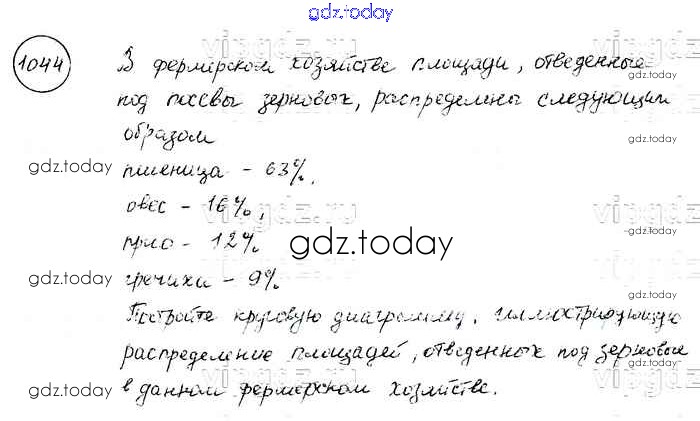 gdz.today
1044 В фермерском хозяйстве площади, отведенные
под посевы зерновых, распределены следующим
образом
gdz.today пшеница - 63%,
овес - 16%,
просо - 12%
gdz.today
gdz.today гречиха - 9% gdz.today
Постройте круговую диаграмму, иллюстрирующую
распределение площадей, отведенных под зерновые
gdz.today в данном фермерском хозяйстве. gdz.today
gdz.today
gdz.today
vipgdz.ru
vipgdz.ru
vipgdz.ru
vipgdz.ru